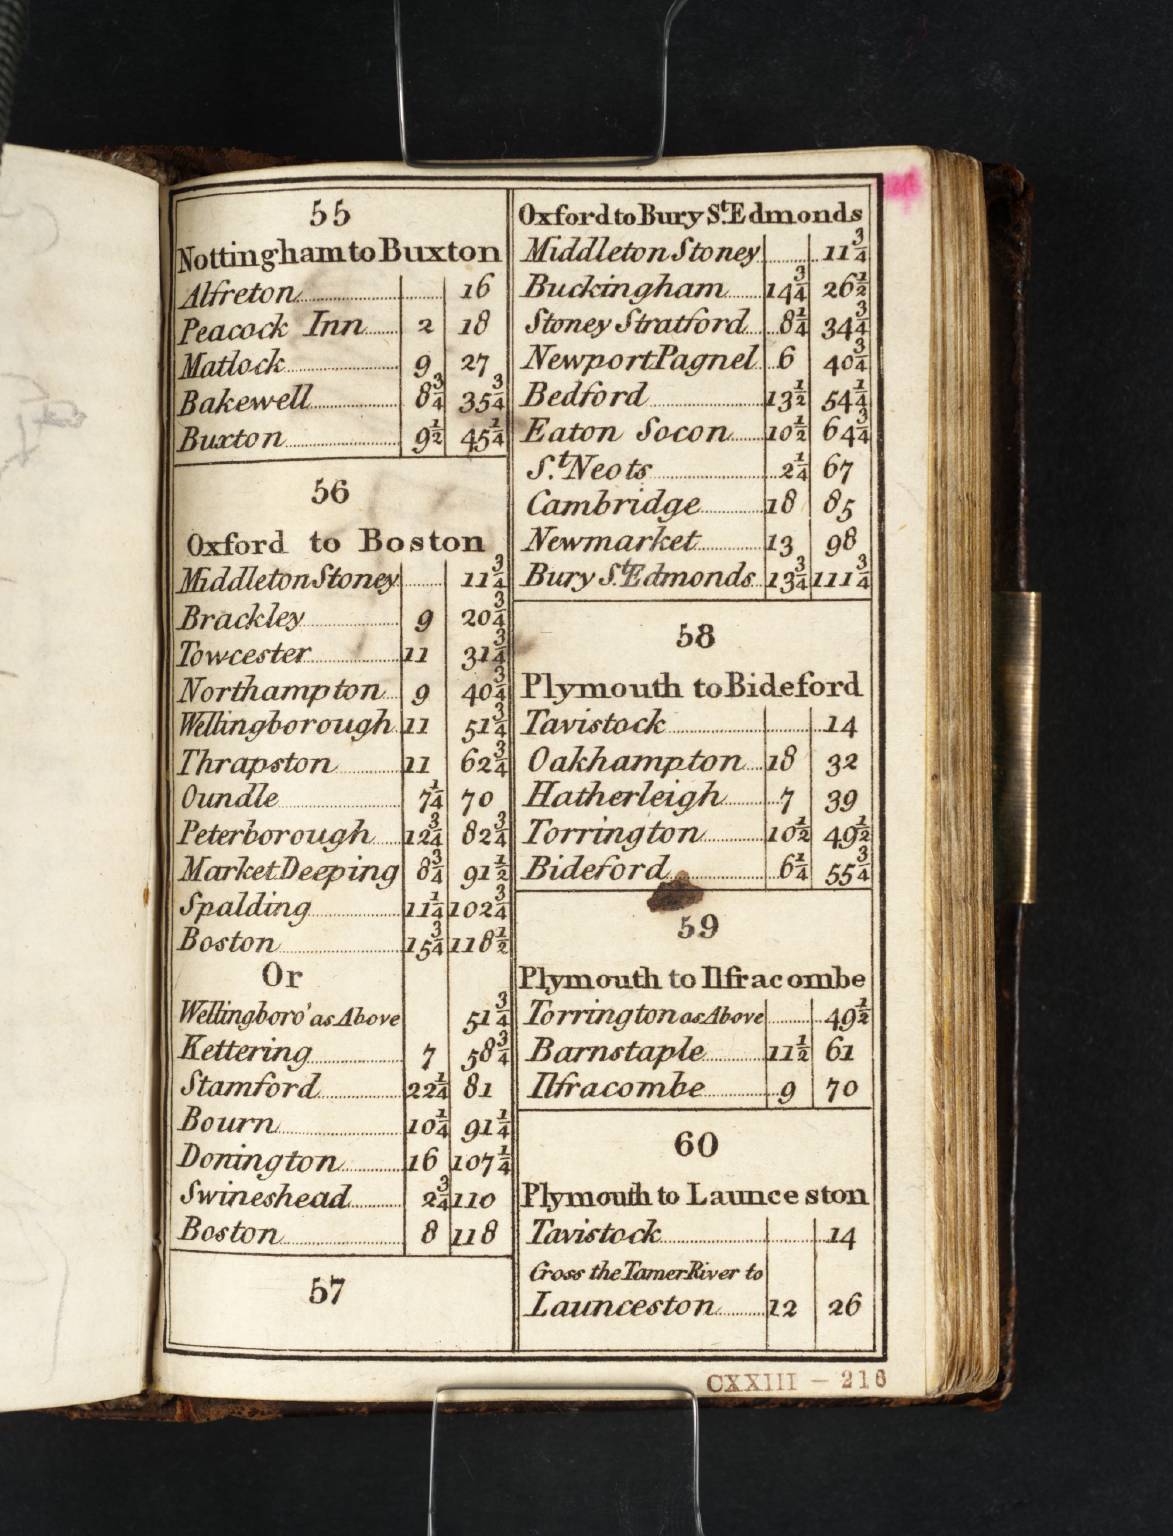 55
Nottingham to Buxton
Alfreton 16
Peacock Inn 2 18
Matlock 9 27
Bakewell 8¾ 35¾
Buxton 9½ 45¼
56
Oxford to Boston
Middleton Stoney 11¾
Brackley 9 20¾
Towcester 11 31¾
Northampton 9 40¾
Wellingborough 11 51¾
Thrapston 11 62¾
Oundle 7¼ 70
Peterborough 12¾ 82¾
Market Deeping 8¾ 91½
Spalding 11¼ 102¾
Boston 15¾ 118½
Or
Wellingboro' as Above 51¾
Kettering 7 58¾
Stamford 22¼ 81
Bourn 10¼ 91¼
Donington 16 107¼
Swineshead 2¾ 110
Boston 8 118
57
Oxford to Bury St. Edmonds
Middleton Stoney 11¾
Buckingham 14¾ 26½
Stoney Stratford 8¼ 34¾
Newport Pagnel 6 40¾
Bedford 13½ 54¼
Eaton Socon 10½ 64¾
St. Neots 2¼ 67
Cambridge 18 85
Newmarket 13 98
Bury St. Edmonds 13¾ 111¾
58
Plymouth to Bideford
Tavistock 14
Oakhampton 18 32
Hatherleigh 7 39
Torrington 10½ 49½
Bideford 6¼ 55¾
59
Plymouth to Ilfracombe
Torrington as Above 49½
Barnstaple 11½ 61
Ilfracombe 9 70
60
Plymouth to Launceston
Tavistock 14
Cross the Tamer River to
Launceston 12 26
CXXIII - 216